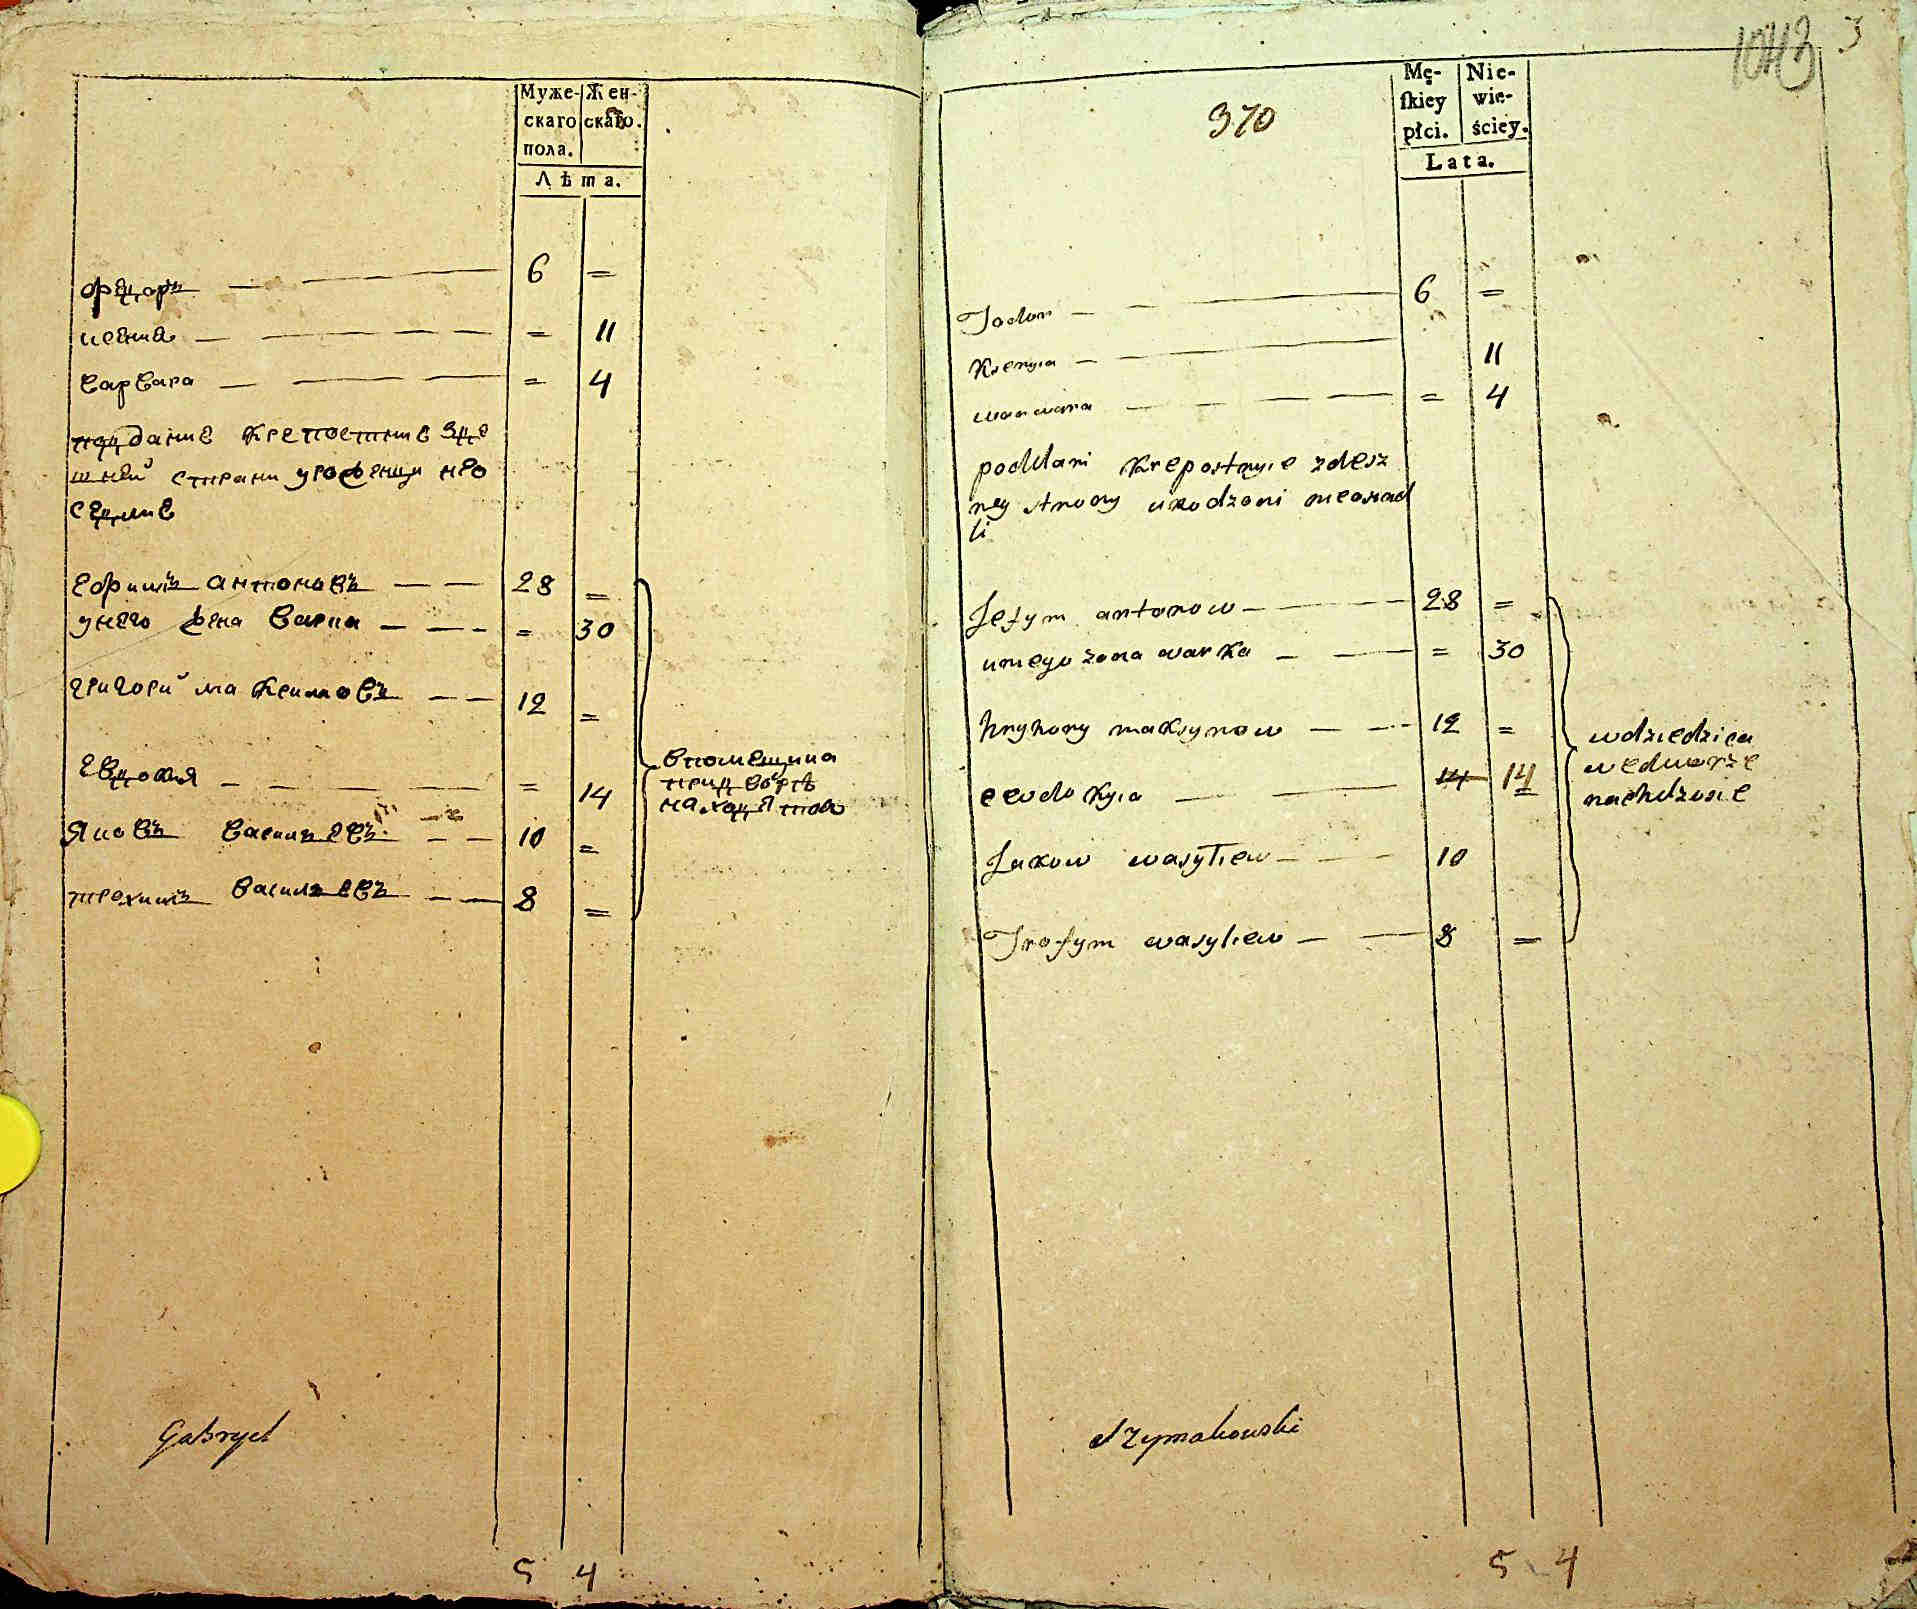 Муже- Жен-
скаго скаго.
пола.
Лѣта.
федоръ — — 6 =
ксения — — — = 11
варвара — — — = 4
подание крепостние зде
шней страни уроженци нео
седлие
ефимъ антоновъ — — 28 =
унего жена варка — — - = 30
григори макси­мовъ — — 12 =
евдокия — — — — = 14
яковъ васильевъ — — 10 =
трохимъ васильевъ — — 8 =
впомещика
при дворѣ
находятся
Gabryel
5 4
1043 3
370
Mę- Nie-
ſkiey wie-
płci. ściey.
Lata.
Fodor — — 6 =
Ksenyia — — 11
warwara — — — = 4
poddani Krepostnyie zdesz
ney strony urodzoni nieosiad
li
Jefym antonow — — 28 =
uniego zona warka — — = 30
hryhory maksymow — — 12 =
eewdokyia — — 14 14
Jakow wasyliew — — 10
Trofym wasyliew — — 8 =
wdziedzica
wedworze
nachdzosie
Szymakowski
5 4